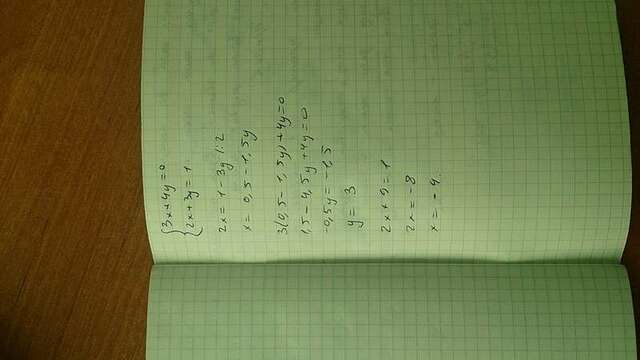 {3x+4y=0
{2x+3y=1
2x=1-3y /:2
x=0,5-1,5y
3(0,5-1,5y)+4y=0
1,5-4,5y+4y=0
-0,5y=-1,5
y=3
2x+9=1
2x=-8
x=-4.